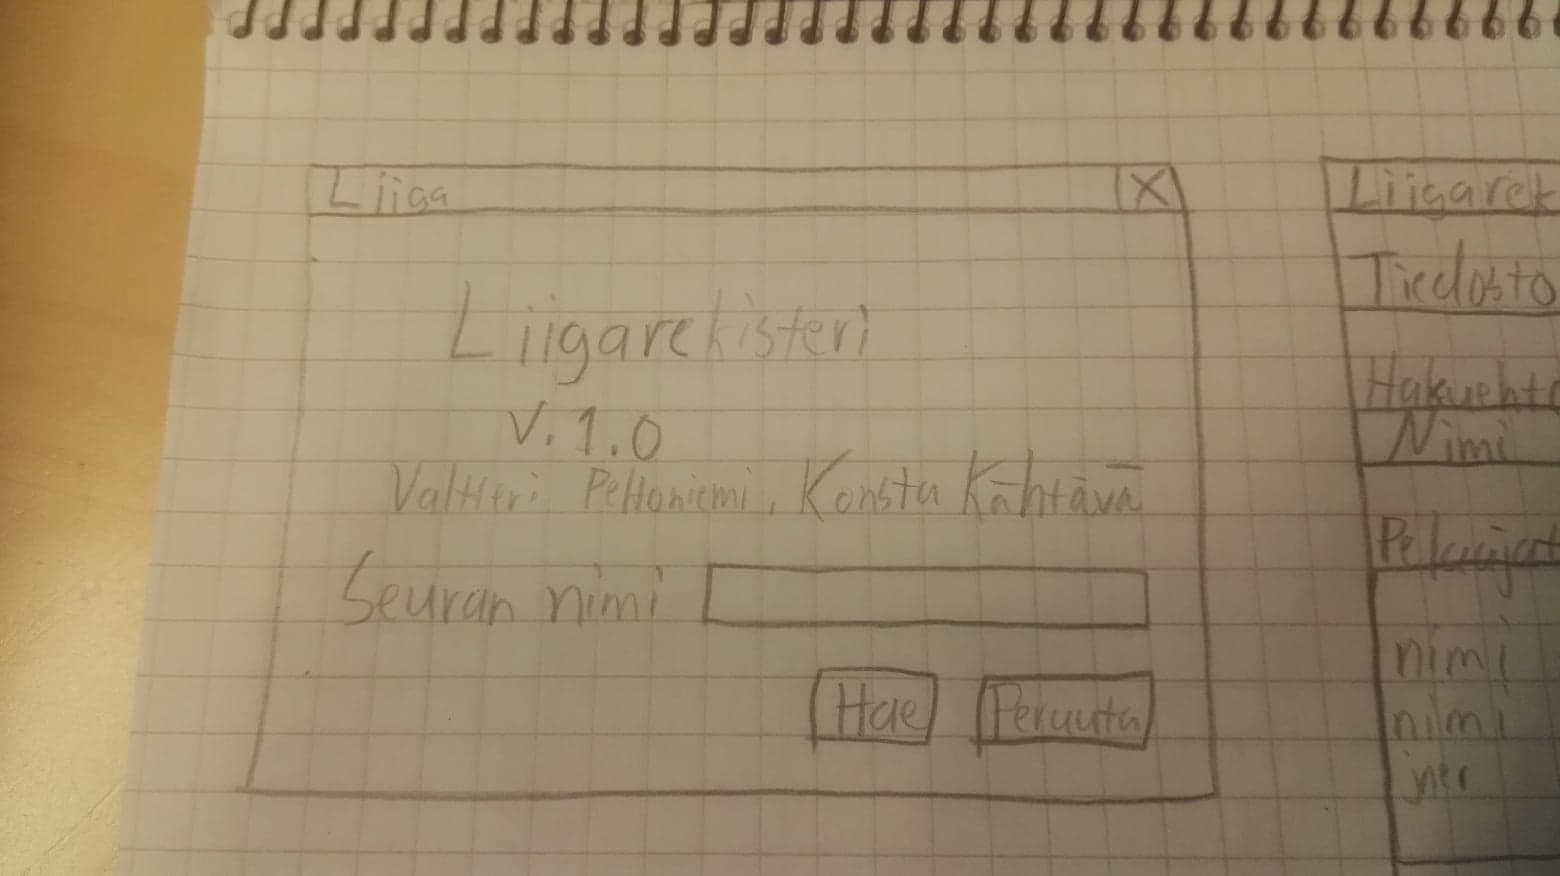 Liiga X
Liigarekisteri
V. 1.0
Valtteri Peltoniemi, Konsta Kähtävä
Seuran nimi
Hae Peruuta
Liigarek
Tiedosto
Hakuehto
Nimi
Pelaajat
nimi
nimi